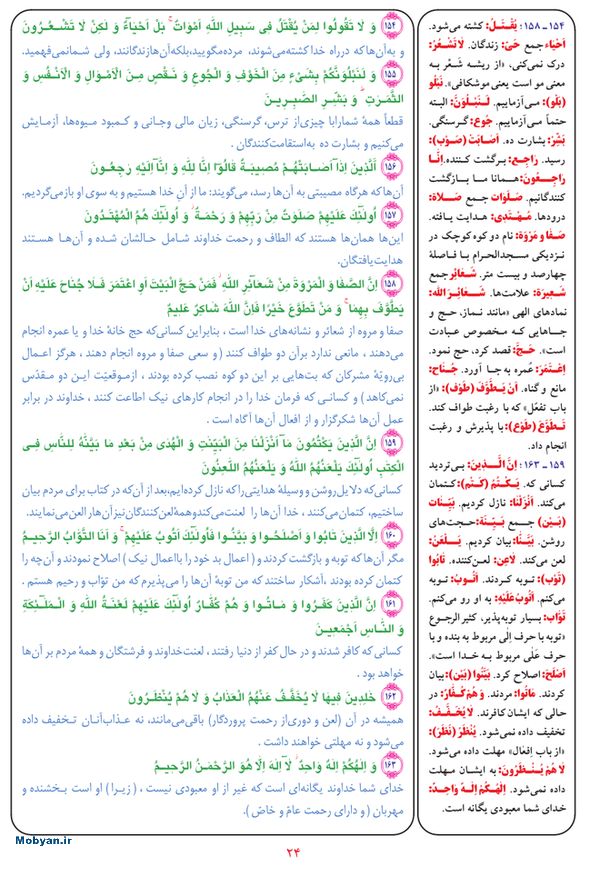 ۱۵۴ـ ۱۵۸: یُقْتَلُ: کشته می‌شود.
اَحْیَاء جمع حَیّ: زندگان. لَا تَشْعُرُ:
درک نمی‌کنی، «از ریشه شَعْر به
معنی مو است یعنی موشکافی». نَبْلُو
(بَلو): می‌آزماییم. لَنَبْلُوَنَّ: البته
حتماً می‌آزماییم. جُوع: گرسنگی.
بَشِّرْ: بشارت ده. اَصَابَتْ (صَوْب):
رسید. رَاجِع: برگشت کننده. اِنَّا
رَاجِعُونَ: همانا ما بازگشت
کنندگانیم. صَلَوَات جمع صَلَاة:
درودها. مُهْتَدِی: هدایت یافته.
صَفَا و مَرْوَة: نام دو کوه کوچک در
نزدیکی مسجدالحرام با فاصلهٔ
چهارصد و بیست متر. شَعَائِر جمع
شَعِیرَة: علامت‌ها. شَعَائِرَ الله:
نمادهای الهی «مانند نماز، حج و
جاهایی که مخصوص عبادت
است». حَجَّ: قصد کرد، حج نمود.
اِعْتَمَرَ: عُمره به جا آورد. جُنَاح:
مانع و گناه. اَنْ یَطَّوَّفَ (طَوْف): «از
باب تفعّل» که با رغبت طواف کند.
تَطَوَّعَ (طَوْع): با پذیرش و رغبت
انجام داد.
۱۵۹ـ ۱۶۳: اِنَّ الَّذِینَ: بی‌تردید
کسانی که. یَکْتُمُ (کَتْم): کتمان
می‌کند. اَنْزَلْنَا: نازل کردیم. بَیِّنَات
(بَیْن) جمع بَیِّنَة: حجت‌های
روشن. بَیَّنَّا: بیان کردیم. یَلْعَنُ:
لعن می‌کند. لَاعِن: لعن‌کننده. تَابُوا
(تَوْب): توبه کردند. اَتُوبُ: توبه
می‌کنم. اَتُوبُ عَلَیْهِ: به او رو می‌کنم.
تَوَّاب: بسیار توبه‌پذیر، کثیر الرجوع
«توبه با حرف اِلی مربوط به بنده و با
حرف عَلَی مربوط به خدا است».
اَصْلَحَ: اصلاح کرد. بَیَّنُوا (بَیْن): بیان
کردند. مَاتُوا: مردند. وَ هُمْ کُفَّار: در
حالی که ایشان کافرند. لَا یُخَفَّفُ:
تخفیف داده نمی‌شود. یُنْظَرُ (نَظَر):
«از باب اِفعال» مهلت داده می‌شود.
لَا هُمْ یُنْظَرُونَ: به ایشان مهلت
داده نمی‌شود. اِلٰهُکُمْ اِلٰهٌ وَاحِدٌ:
خدای شما معبودی یگانه است.
۱۵۴ وَ لَا تَقُولُوا لِمَنْ یُقْتَلُ فِی سَبِیلِ اللهِ اَمْوَاتٌ ۚ بَلْ اَحْیَاءٌ وَ لٰکِنْ لَا تَشْعُرُونَ
و به آن‌ها که در راه خدا کشته می‌شوند، مرده مگویید، بلکه آن‌ها زندگانند، ولی شما نمی‌فهمید.
۱۵۵ وَ لَنَبْلُوَنَّکُمْ بِشَیْءٍ مِنَ الْخَوْفِ وَ الْجُوعِ وَ نَقْصٍ مِنَ الْاَمْوَالِ وَ الْاَنْفُسِ وَ
الثَّمَرٰتِ ۗ وَ بَشِّرِ الصّٰبِرِینَ
قطعاً همهٔ شما را با چیزی از ترس، گرسنگی، زیان مالی و جانی و کمبود میوه‌ها، آزمایش
می‌کنیم و بشارت ده به استقامت‌کنندگان .
۱۵۶ اَلَّذِینَ اِذَا اَصَابَتْهُمْ مُصِیبَةٌ قَالُوٓا اِنَّا لِلّٰهِ وَ اِنَّآ اِلَیْهِ رٰجِعُونَ
آن‌ها که هرگاه مصیبتی به آن‌ها رسد، می‌گویند: ما از آنِ خدا هستیم و به سوی او بازمی‌گردیم.
۱۵۷ اُولٰٓئِکَ عَلَیْهِمْ صَلَوٰتٌ مِنْ رَبِّهِمْ وَ رَحْمَةٌ ۖ وَ اُولٰٓئِکَ هُمُ الْمُهْتَدُونَ
این‌ها همان‌ها هستند که الطاف و رحمت خداوند شامل حالشان شده و آن‌ها هستند
هدایت‌یافتگان.
۱۵۸ اِنَّ الصَّفَا وَ الْمَرْوَةَ مِنْ شَعَآئِرِ اللهِ ۖ فَمَنْ حَجَّ الْبَیْتَ اَوِ اعْتَمَرَ فَلَا جُنَاحَ عَلَیْهِ اَنْ
یَطَّوَّفَ بِهِمَا ۚ وَ مَنْ تَطَوَّعَ خَیْرًا فَاِنَّ اللهَ شَاکِرٌ عَلِیمٌ
صفا و مروه از شعائر و نشانه‌های خدا است ، بنابراین کسانی که حج خانهٔ خدا و یا عمره انجام
می‌دهند ، مانعی ندارد بر آن دو طواف کنند ( و سعی صفا و مروه انجام دهند ، هرگز اعمال
بی‌رویّهٔ مشرکان که بت‌هایی بر این دو کوه نصب کرده بودند ، از موقعیّت این دو مقدّس
نمی‌کاهد ) و کسانی که فرمان خدا را در انجام کارهای نیک اطاعت کنند ، خداوند در برابر
عمل آن‌ها شکرگزار و از افعال آن‌ها آگاه است .
۱۵۹ اِنَّ الَّذِینَ یَکْتُمُونَ مَآ اَنْزَلْنَا مِنَ الْبَیِّنٰتِ وَ الْهُدٰی مِنْ بَعْدِ مَا بَیَّنّٰهُ لِلنَّاسِ فِی
الْکِتٰبِ اُولٰٓئِکَ یَلْعَنُهُمُ اللهُ وَ یَلْعَنُهُمُ اللّٰعِنُونَ
کسانی که دلایل روشن و وسیلهٔ هدایتی را که نازل کرده‌ایم، بعد از آن که در کتاب برای مردم بیان
ساختیم، کتمان می‌کنند ، خدا آن‌ها را لعنت می‌کند و همهٔ لعن‌کنندگان نیز آن‌ها را لعن می‌نمایند.
۱۶۰ اِلَّا الَّذِینَ تَابُوا وَ اَصْلَحُوا وَ بَیَّنُوا فَاُولٰٓئِکَ اَتُوبُ عَلَیْهِمْ ۚ وَ اَنَا التَّوَّابُ الرَّحِیمُ
مگر آن‌ها که توبه و بازگشت کردند و ( اعمال بد خود را با اعمال نیک ) اصلاح نمودند و آن‌چه را
کتمان کرده بودند ، آشکار ساختند که من توبهٔ آن‌ها را می‌پذیرم که من توّاب و رحیم هستم .
۱۶۱ اِنَّ الَّذِینَ کَفَرُوا وَ مَاتُوا وَ هُمْ کُفَّارٌ اُولٰٓئِکَ عَلَیْهِمْ لَعْنَةُ اللهِ وَ الْمَلٰٓئِکَةِ
وَ النَّاسِ اَجْمَعِینَ
کسانی که کافر شدند و در حال کفر از دنیا رفتند ، لعنت خداوند و فرشتگان و همهٔ مردم بر آن‌ها
خواهد بود .
۱۶۲ خٰلِدِینَ فِیهَا لَا یُخَفَّفُ عَنْهُمُ الْعَذَابُ وَ لَا هُمْ یُنْظَرُونَ
همیشه در آن (لعن و دوری از رحمت پروردگار) باقی می‌مانند، نه عذاب آنان تخفیف داده
می‌شود و نه مهلتی خواهند داشت .
۱۶۳ وَ اِلٰهُکُمْ اِلٰهٌ وَاحِدٌ ۖ لَآ اِلٰهَ اِلَّا هُوَ الرَّحْمٰنُ الرَّحِیمُ
خدای شما خداوند یگانه‌ای است که غیر از او معبودی نیست ، ( زیرا ) او است بخشنده و
مهربان ( و دارای رحمت عامّ و خاصّ ) .
Mobyan.ir
۲۴